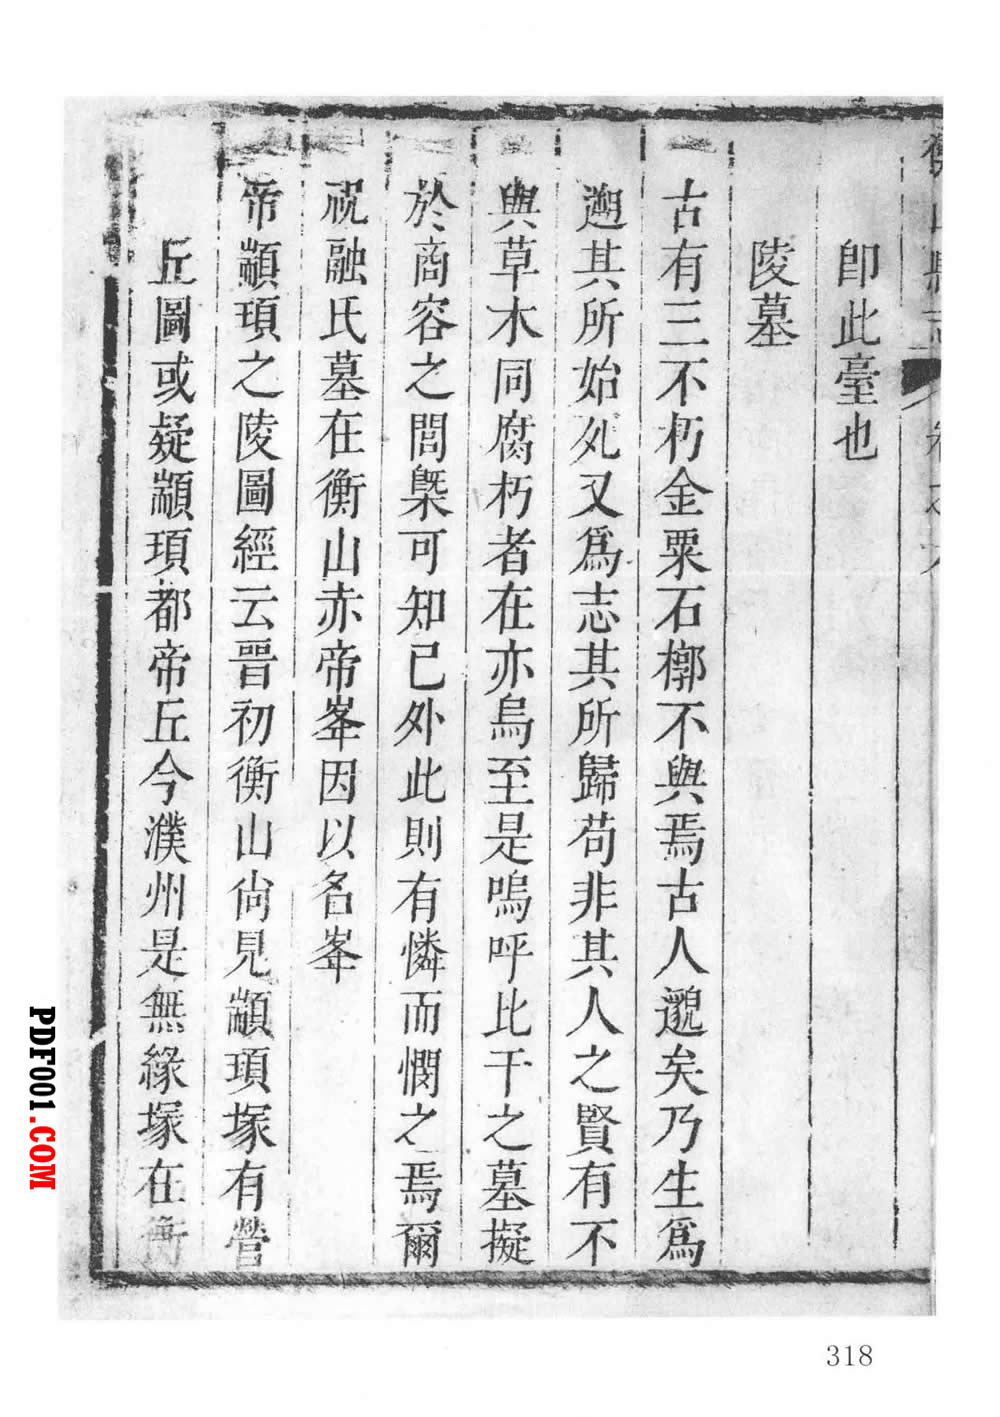 卽此臺也
陵墓
古有三不朽金粟石槨不與焉古人邈矣乃生爲
遡其所始死又爲志其所歸苟非其人之賢有不
與草木同腐朽者在亦烏至是嗚呼比干之墓擬
於商容之閭槩可知已外此則有憐而憫之焉爾
祝融氏墓在衡山赤帝峯因以名峯
帝顓頊之陵圖經云晉初衡山尙見顓頊塚有營
丘圖或疑顓頊都帝丘今濮州是無緣塚在衡
318
PDF001.COM